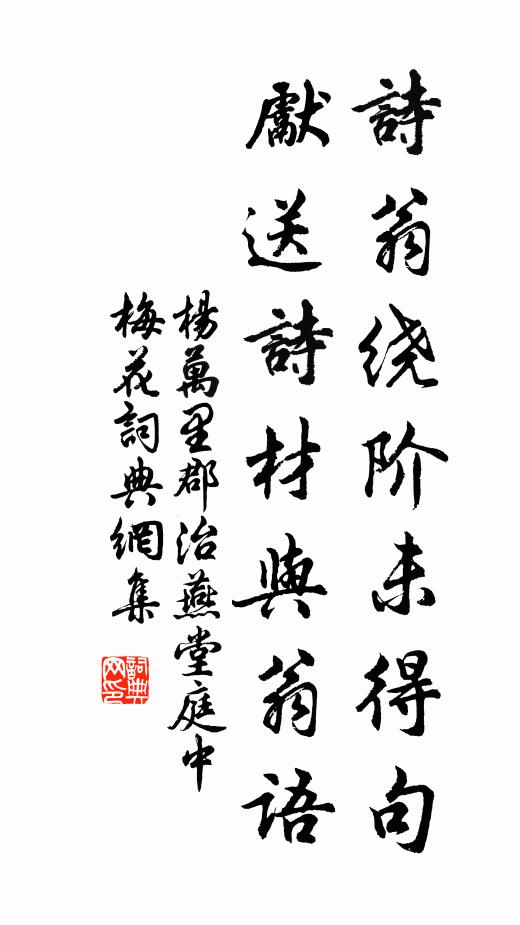 詩翁绕阶未得句
獻送詩材與翁语
楊萬里郡治燕堂庭中
梅花詞典網集
詞典网印